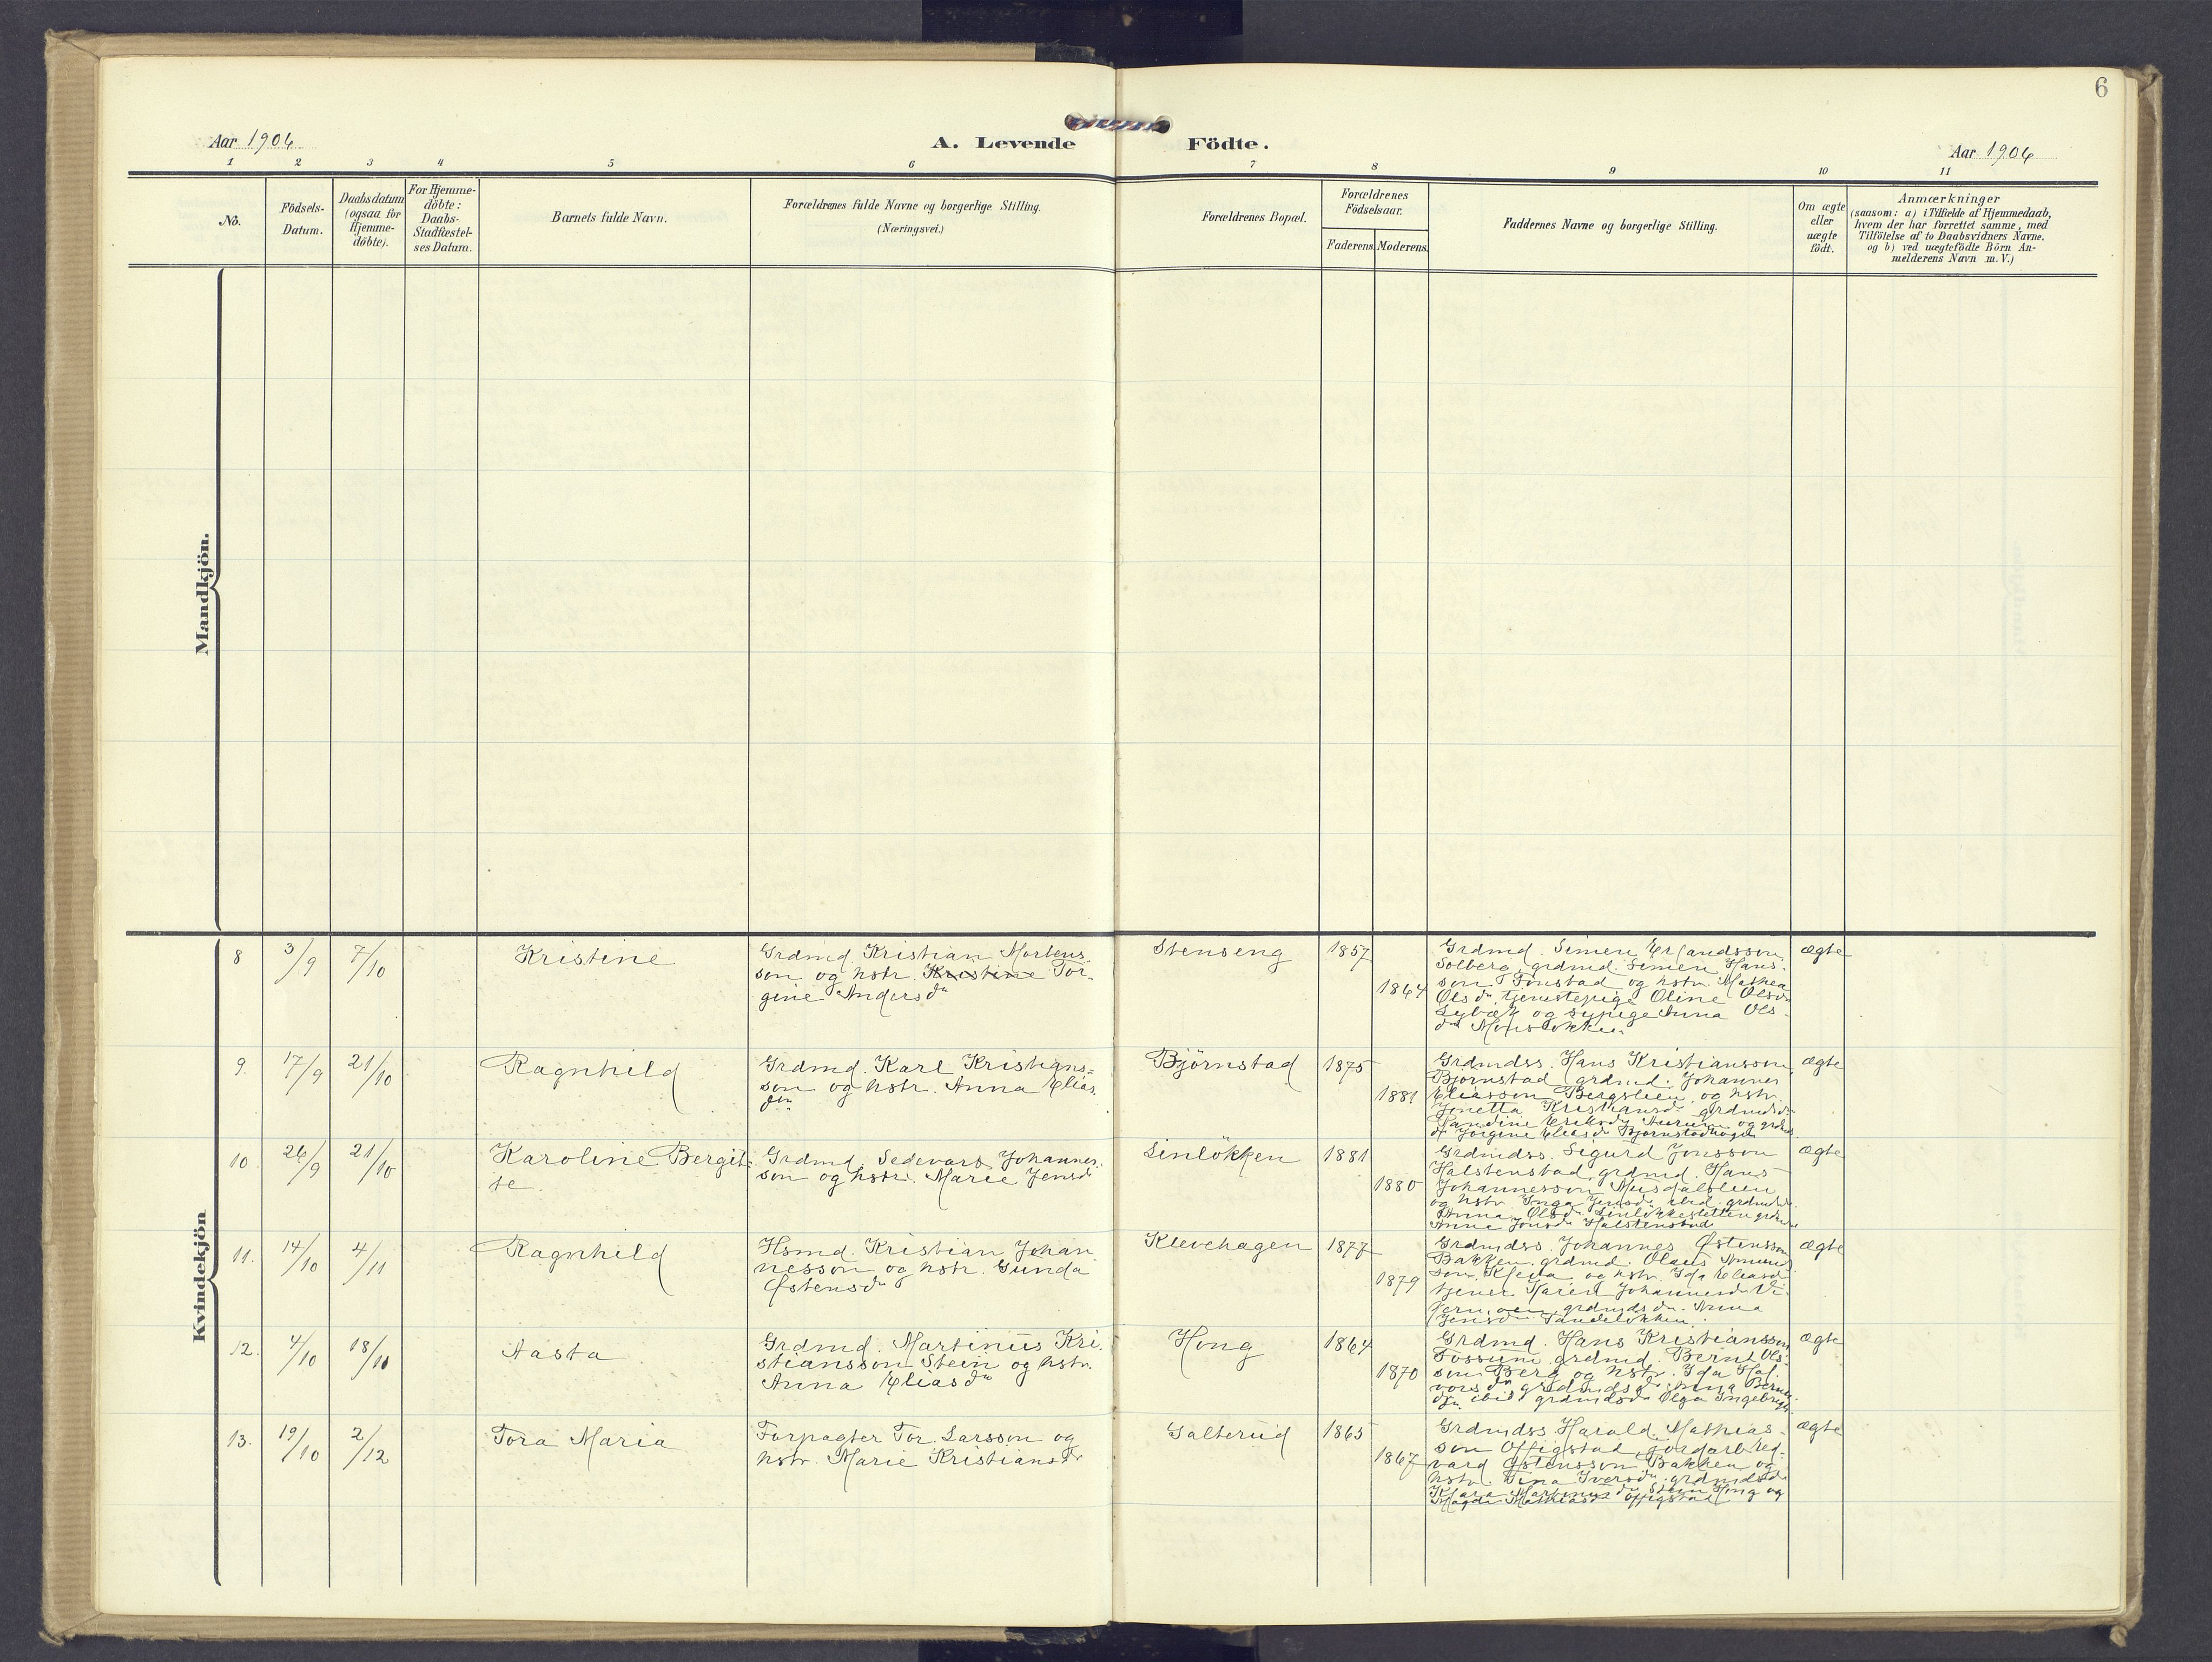 6
Aar 1906
A. Levende Födte.
Aar 1906
1 2 3 4 5 6 7 8 9 10 11
Nô.
Födsels-
Datum.
Daabsdatum
(ogsaa for
Hjemme-
döbte).
For Hjemme-
döbte:
Daabs-
Stadfæstel-
ses Datum.
Barnets fulde Navn.
Forældrenes fulde Navne og borgerlige Stilling.
(Næringsvei.)
Forældrenes Bopæl.
Forældrenes
Födselsaar.
Faderens. Moderens.
Faddernes Navne og borgerlige Stilling.
Om ægte
eller
uægte
födt.
Anmærkninger
(saasom: a) i Tilfælde af Hjemmedaab,
hvem der har forrettet samme, med
Tilföielse af to Daabsvidners Navne.
og b) ved uægtefödte Börn An-
melderens Navn m. V.)
Mandkjön.
Kvindekjön
8 3/9 7/10
Kristine
Grdmd. Kristian Mortens-
son og hstr. Kristine Tor-
gine Andersdtr
Stenseng
1857
1864
Grdmd. Simen Erlandsson
Solberg, grdmd. Simen Hans-
son Fonstad og hstr. Mathea
Olsdtr, tjenestepige Oline Olsdtr
Lybæk og sypige Anna Ols-
dtr
ægte
9. 17/9 21/10
Ragnhild
Grdmd. Karl Kristians=
son og hstr. Anna Elias
dtr
Björnstad
1875
1881
Grdmdss. Hans Kristiansson
Björnstad, grdmd. Johannes
Eliasson Bergslien og hstr.
Jonetta Kristiansdtr grdmdsdtr
og
Jörgine Eliasdtr
ægte
10. 26/9 21/10
Karoline Bergit-
te
Grdmd. Sedevars Johannes-
son og hstr. Marie Jensdtr
Linlökken
1881
1880
Grdmdss. Sigurd Jonsson
Halstenstad, grdmd. Hans
Johannesson
og hstr. Inga Jensdtr ibid. grdmdsdtr
Anna Olsdtr
Anna Jonsdtr Halstenstad
ægte
11. 14/10 4/11
Ragnhild
Hsmd. Kristian Johan
nesson og hstr. Gunda
Østensdtr
Klevehagen
1877
1879
Grdmdss. Johannes Østensson
Bakken, grdmd. Olaus Amund
son Kleva og hstr. Ida Eliasdtr
tjener Karen Johannesdtr
grdmdsdtr. Anna
Jensdtr
ægte
12. 4/10 18/11
Aasta
Grdmd. Martinus Kri-
stiansson Stein og hstr.
Anna Eliasdtr
Hong
1864
1870
Grdmd. Hans Kristiansson
Fossum, grdmd. Bernt Ols-
son Berg og hstr. Ida Hal-
vorsdtr grdmdsdtr
dtr ibid grdmdsdtr Olga
ægte
13. 19/10 2/12
Tora Maria
Forpagter Tor Larsson og
hstr. Marie Kristiansdtr
Galterud
1865
1867
Grdmdss Harald Mathias-
son Offigstad, jordarb.
vard Østensson Bakken og
hstr. Tina Iversdtr grdmdsdtr
Klara Martinusdtr Stein Hong og
Magda Mathiasdtr Offigstad
ægte